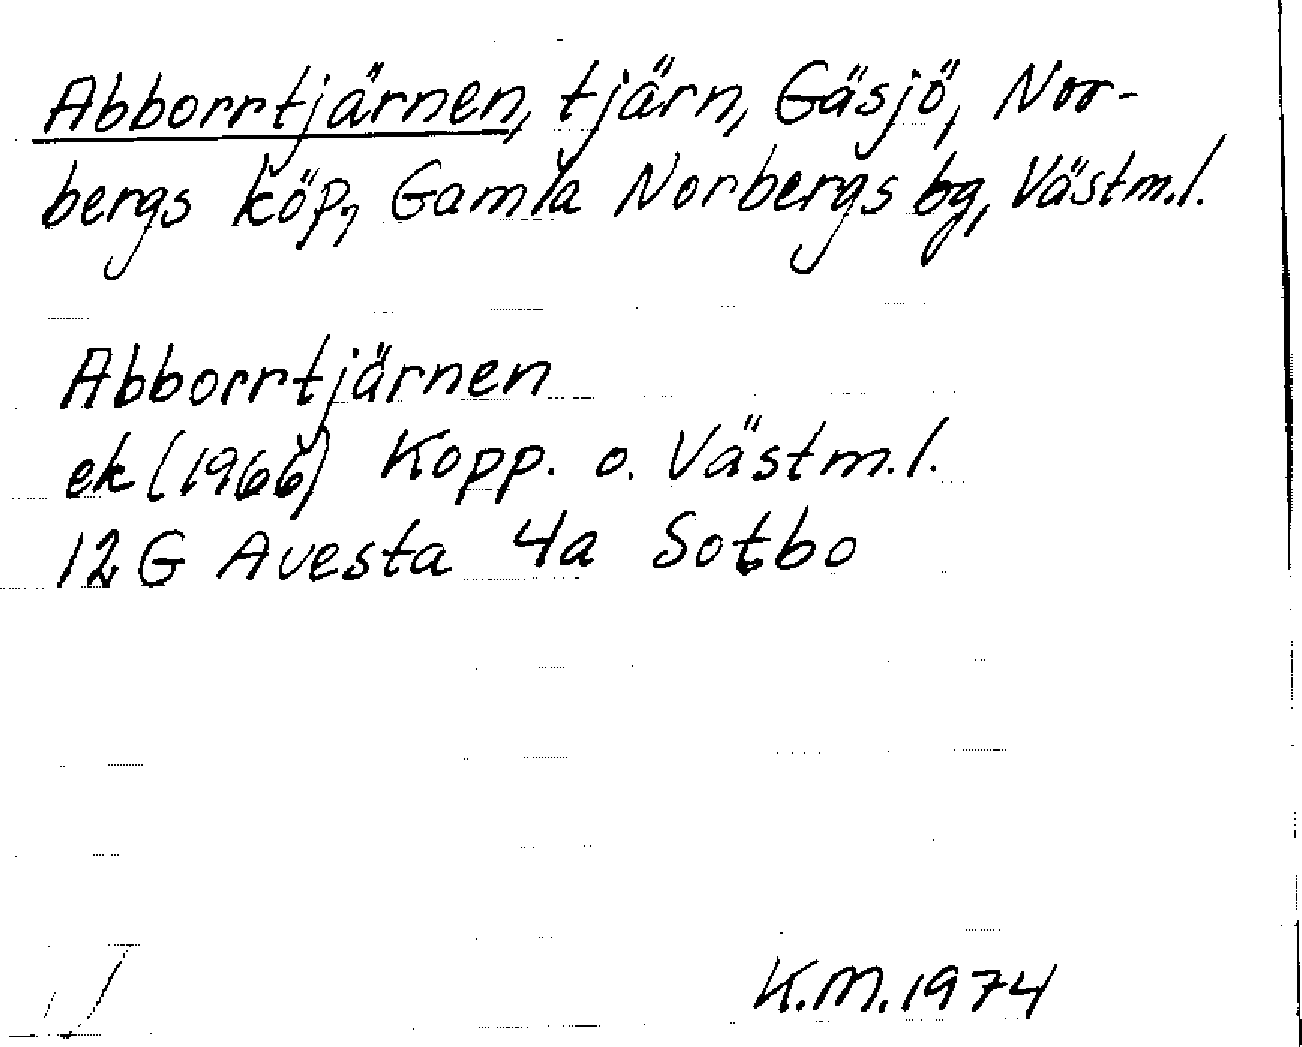 Abborrtjärnen, tjärn, Gäsjö, Nor-
bergs köp, Gamla Norbergs bg, Västm.l.
Abborrtjärnen
ek (1966) Kopp. o. Västm.l.
12G Avesta 4a Sotbo
K.M. 1974